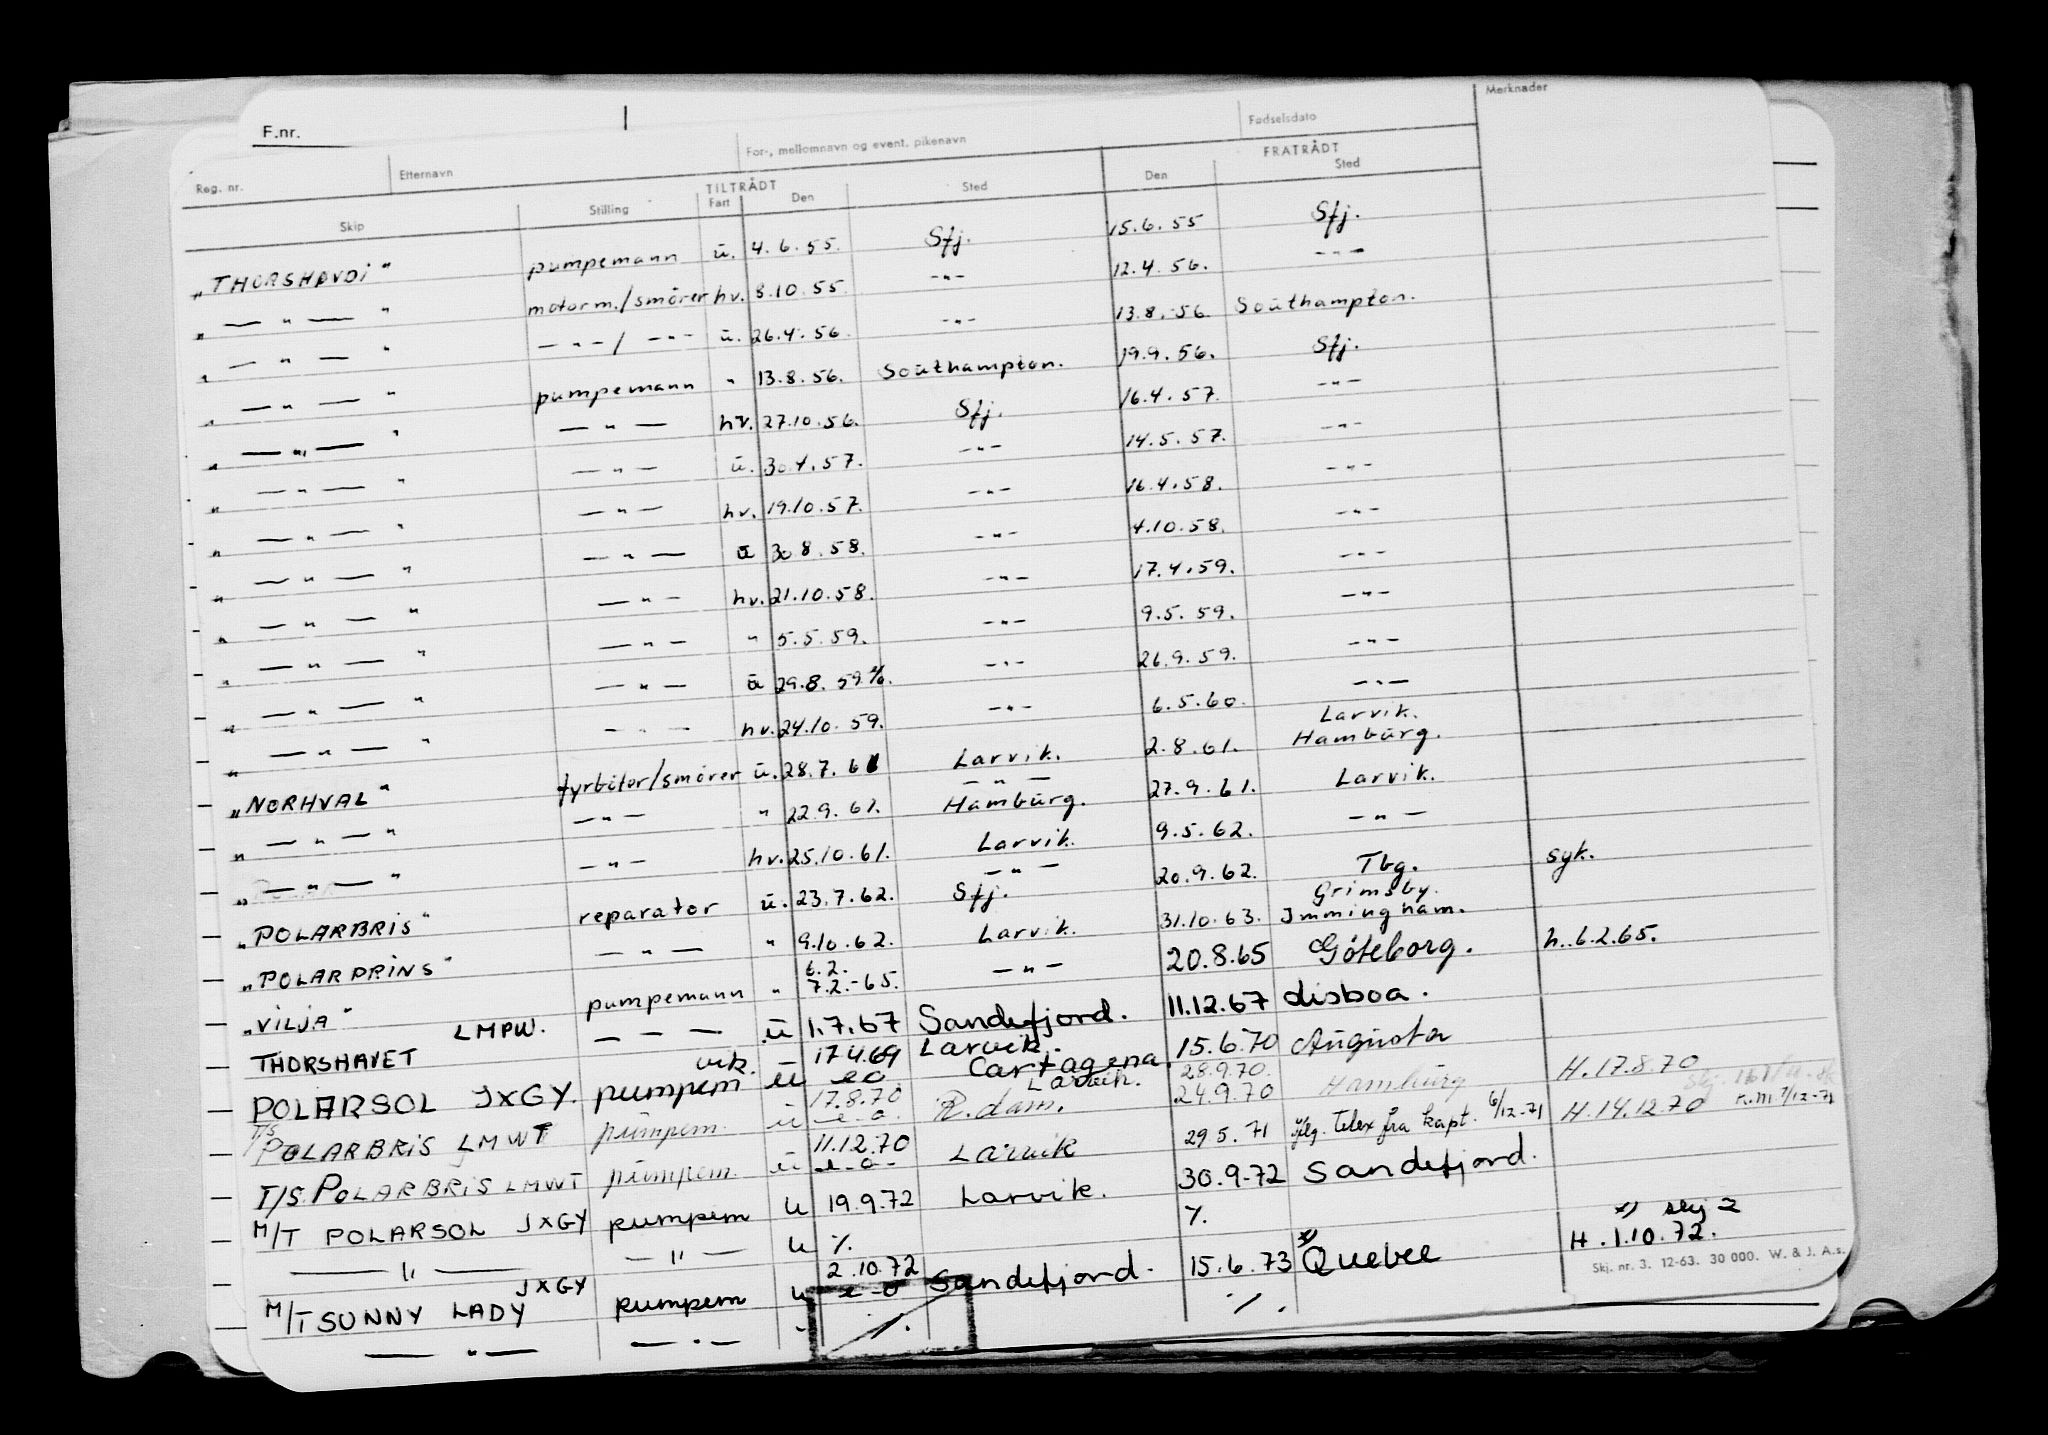 F.nr.
Reg. nr. Etternavn For-, mellomnavn og event. pikenavn Fødselsdato Merknader
TILTRÅDT FRATRÅDT
Skip Stilling Fart Den Sted Den Sted
"THORSHAVDI" pumpemann u. 4.6.55. Sfj. 15.6.55 Sfj.
" — " — " motorm./smører hv. 8.10.55. -"- 12.4.56. -"-
" — " — " -"-/ -"- u. 26.4.56. -"- 13.8.56. Southampton.
" — " — " pumpemann " 13.8.56. Southampton. 19.9.56. Sfj.
" — " — " — " — hv. 27.10.56. Sfj. 16.4.57. -"-
" — " — " — " — u. 30.4.57. -"- 14.5.57. -"-
" — " — " — " — hv. 19.10.57. -"- 16.4.58. -"-
" — " — " — " — u 30.8.58. -"- 4.10.58. -"-
" — " — " — " — hv. 21.10.58. -"- 17.4.59. -"-
" — " — " — " — " 5.5.59. -"- 9.5.59. -"-
" — " — " — " — u 29.8.59. -"- 26.9.59. -"-
" — " — " — " — hv. 24.10.59. -"- 6.5.60. -"-
"NORHVAL" fyrbøter/smører u. 28.7.61 Larvik. 2.8.61. Larvik. Hamburg.
" — " — " — " — " 22.9.61. — " — Hamburg. 27.9.61. Larvik.
" — " — " — " — hv. 25.10.61. Larvik. 9.5.62. — " —
"POLARBRIS" reparatør u. 23.7.62. — " — Sfj. 20.9.62. Tbg. syk.
"POLARPRINS" — " — " 9.10.62. Larvik. 31.10.63. Grimsby. Immingham.
"VILJA" pumpemann " 6.2. 7.2.-65. — " — 20.8.65 Göteborg. h. 6.2.65.
THORSHAVET LMPW. — — u 1.7.67 Sandefjord. 11.12.67 Lisboa.
POLARSOL JXGY. vik. pumpem u 17.4.69 Larvik. Cartagena. 15.6.70 Augusta
T/S POLARBRIS LMWT pumpem. u 17.8.70 Larvik. R.dam. 28.9.70. 24.9.70 Hamburg H. 17.8.70
T/S. POLARBRIS LMWT pumpem. u 11.12.70 Larvik 29.5.71 iflg. telex fra kapt. 6/12-71 H. 14.12.70
M/T POLARSOL JXGY pumpem u 19.9.72 Larvik. 30.9-72 Sandefjord.
— " — — " — u %. %.
M/T SUNNY LADY JXGY pumpem u 2.10.72 Sandefjord. 15.6.73 x) Quebec x) skj 2 H. 1.10.72.
— " — — " — - /. /.
Skj. nr. 3. 12-63. 30 000. W. & J. A.s.